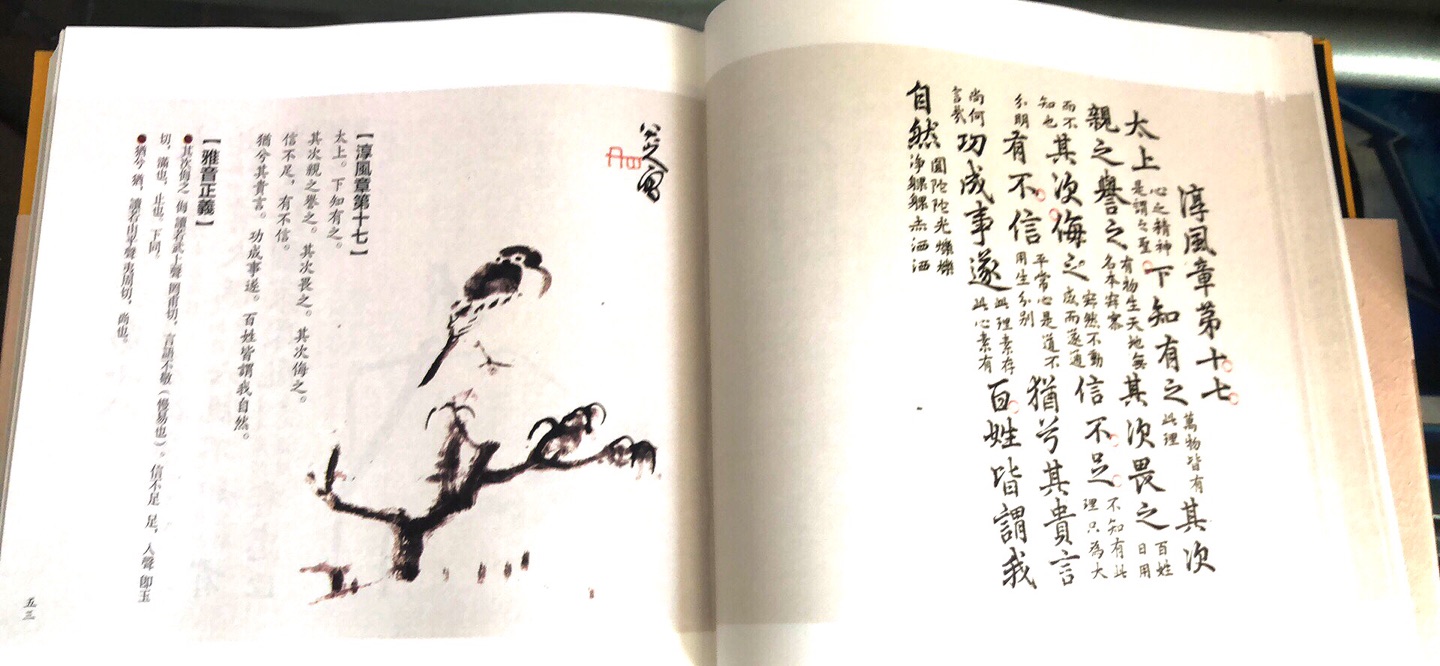 淳風章第十七
太上心之精神是謂之聖下知有之萬物皆有此理其次
親之譽之有物生天地無名本寂寥其次畏之百姓日用
而不知也其次侮之寂然不動感而遂通信不足不知有此理只為大
分明有不信平常心是道不用生分別猶兮其貴言
尚何言哉功成事遂此理素存此心素有百姓皆謂我
自然圓陀陀光爍爍淨躶躶赤洒洒
【淳風章第十七】
太上。下知有之。
其次親之譽之。其次畏之。其次侮之。
信不足，有不信。
猶兮其貴言。功成事遂。百姓皆謂我自然。
【雅音正義】
●其次侮之 侮，讀若武上聲，罔甫切，言語不敬（慢易也）。信不足 足，入聲，即玉
切，滿也，止也。下同。
●猶兮 猶，讀若由平聲，夷周切，尚也。
五三